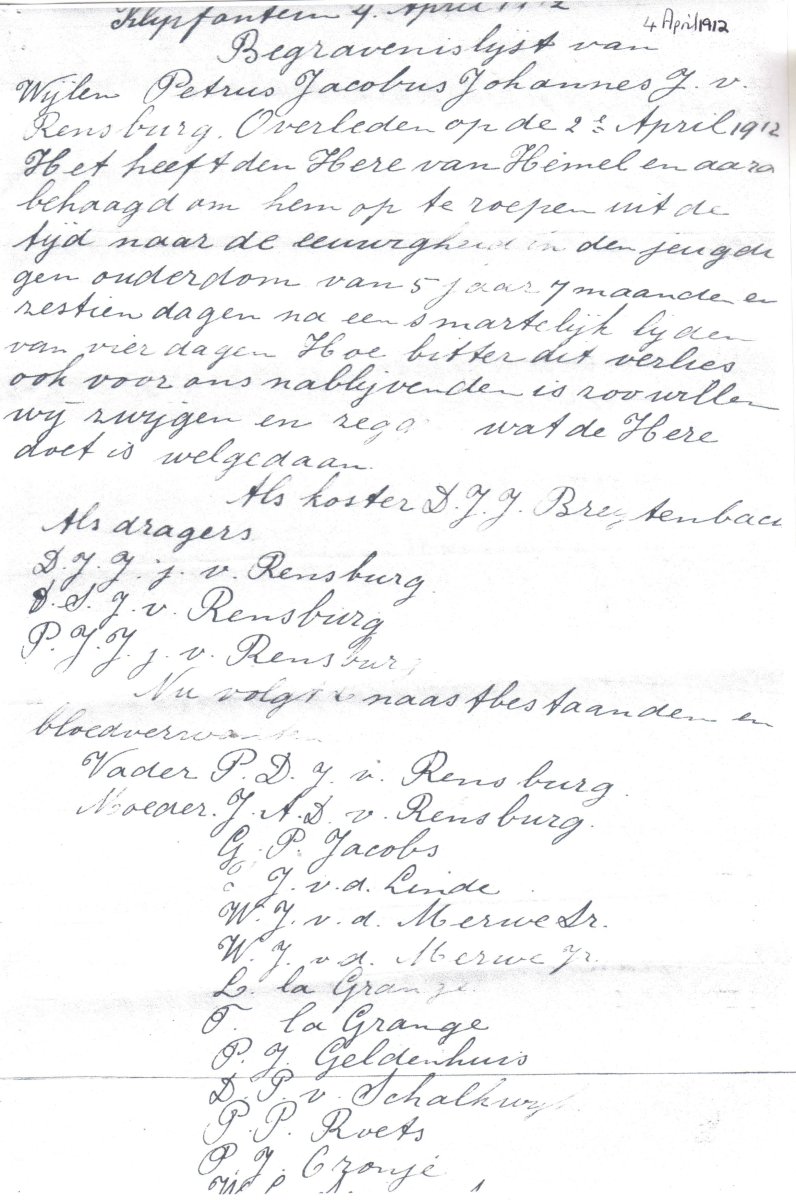 Klipfontein 4. April 1912
4 April 1912
Begravenislijst van
Wijlen Petrus Jacobus Johannes J. v.
Rensburg. Overleden op de 2e April 1912
Het heeft den Here van Hemel en aard
behaagd om hem op te roepen uit de
tijd naar de eeuwigheid in den jeugdi
gen ouderdom van 5 jaar 7 maanden en
zestien dagen na een smartelijk lijden
van vier dagen Hoe bitter dit verlies
ook voor ons nablijvenden is zoo willen
wij zwijgen en wat de Here
doet is welgedaan.
Als koster D. J. J. Breytenbach
Als dragers
D. J. J. j. v. Rensburg
S. J. v. Rensburg
P. J. J. j. v. Rensburg
Nu volgt naastbestaanden en
bloedverwanten
Vader P. D. J. v. Rensburg.
Moeder. J. A. D. v. Rensburg.
G. P. Jacobs
J. v. d. Linde
W. J. v. d. Merwe Sr.
W. J. v. d. Merwe Jr.
L. la Grange
F. la Grange
P. J. Geldenhuis
D. P. v. Schalkwyk
P. P. Roets
P. J. Cronjé